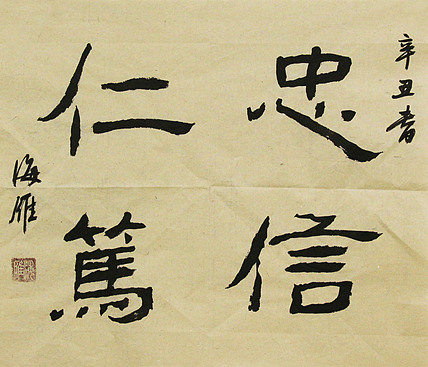 辛丑春
忠信
仁篤
海雁